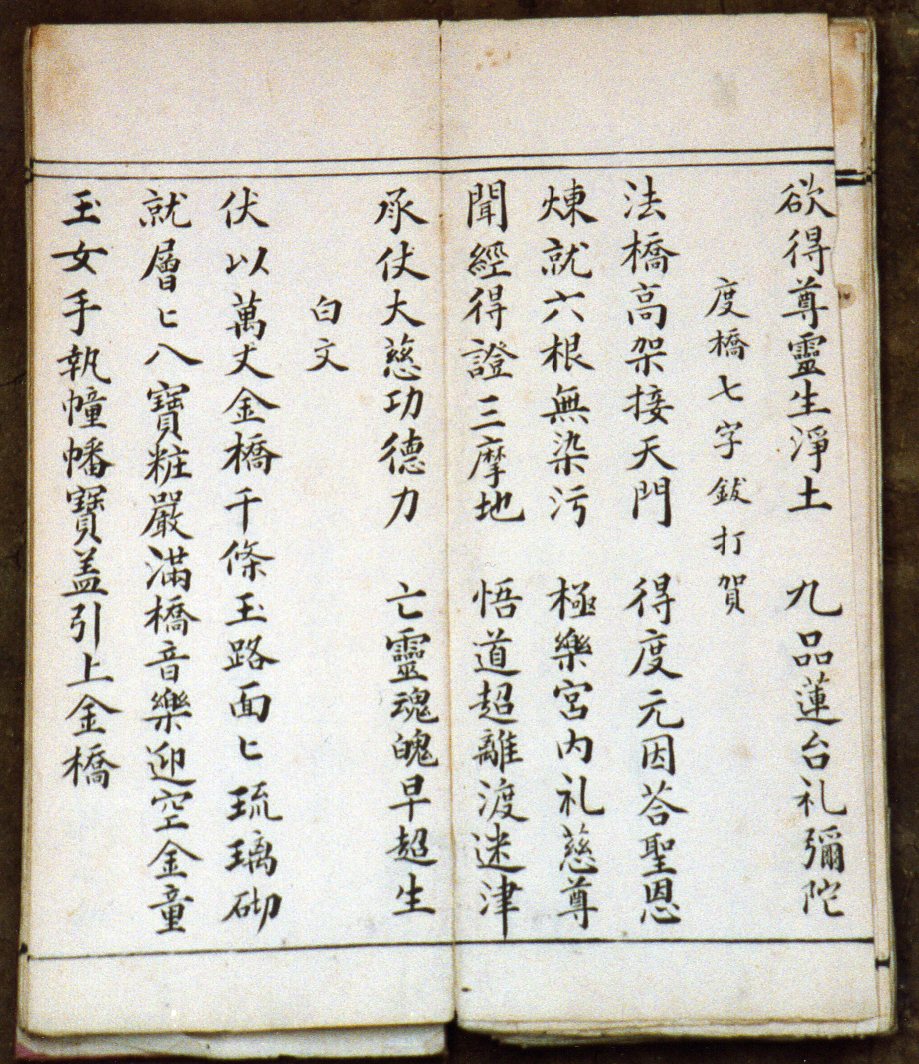 欲得尊靈生淨土　九品蓮台礼彌陀
度橋七字鈸打賀
法橋高架接天門　得度元因荅聖恩
煉就六根無染污　極樂宮內礼慈尊
聞經得證三摩地　悟道超離渡迷津
承仗大慈功德力　亡靈魂魄早超生
白文
伏以萬丈金橋千條玉路面匕琉璃砌
就層匕八寶粧嚴滿橋音樂迎空金童
玉女手執幢幡寶盖引上金橋